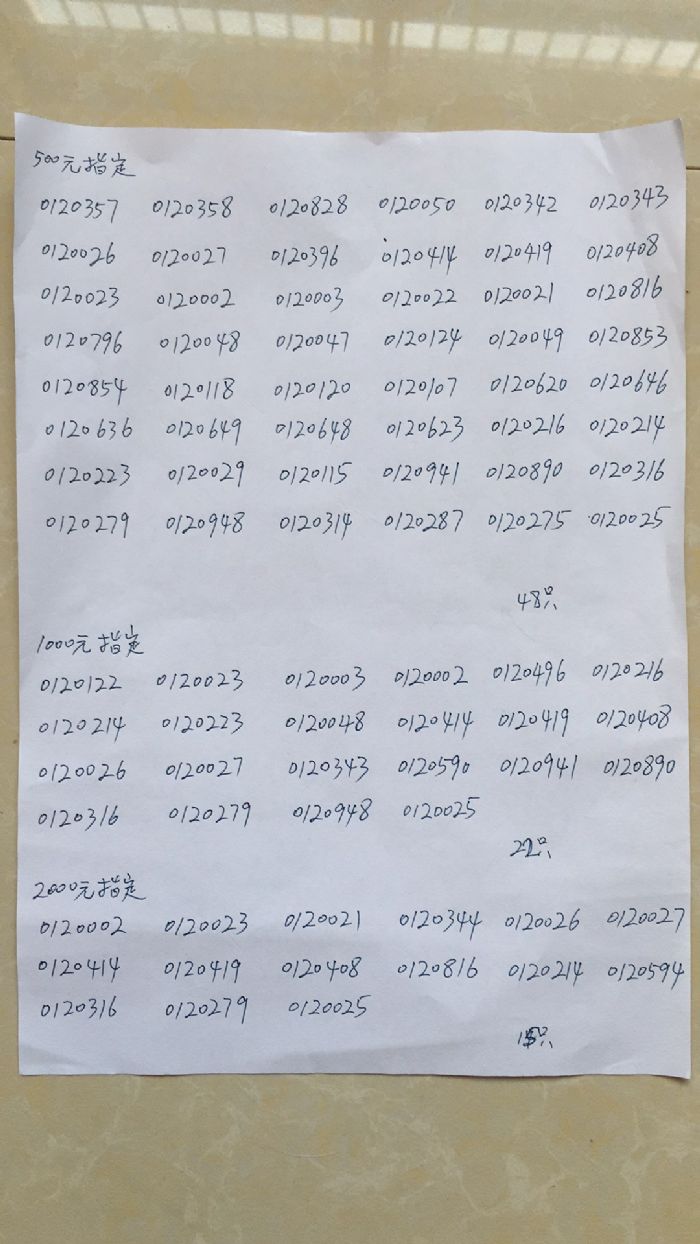 500元指定
0120357 0120358 0120828 0120050 0120342 0120343
0120026 0120027 0120396 0120414 0120419 0120408
0120023 0120002 0120003 0120022 0120021 0120816
0120796 0120048 0120047 0120124 0120049 0120853
0120854 0120118 0120120 0120107 0120620 0120646
0120636 0120649 0120648 0120623 0120216 0120214
0120223 0120029 0120115 0120941 0120890 0120316
0120279 0120948 0120314 0120287 0120275 0120025
48只
1000元指定
0120122 0120023 0120003 0120002 0120496 0120216
0120214 0120223 0120048 0120414 0120419 0120408
0120026 0120027 0120343 0120590 0120941 0120890
0120316 0120279 0120948 0120025
22只
2000元指定
0120002 0120023 0120021 0120344 0120026 0120027
0120414 0120419 0120408 0120816 0120214 0120594
0120316 0120279 0120025
15只